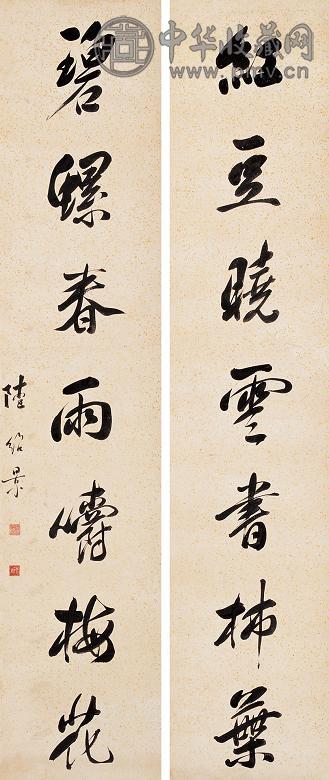 紅豆曉雲書柿葉
碧螺春雨嚼梅花
陸紹景
中华收藏网
www.pmv.cn